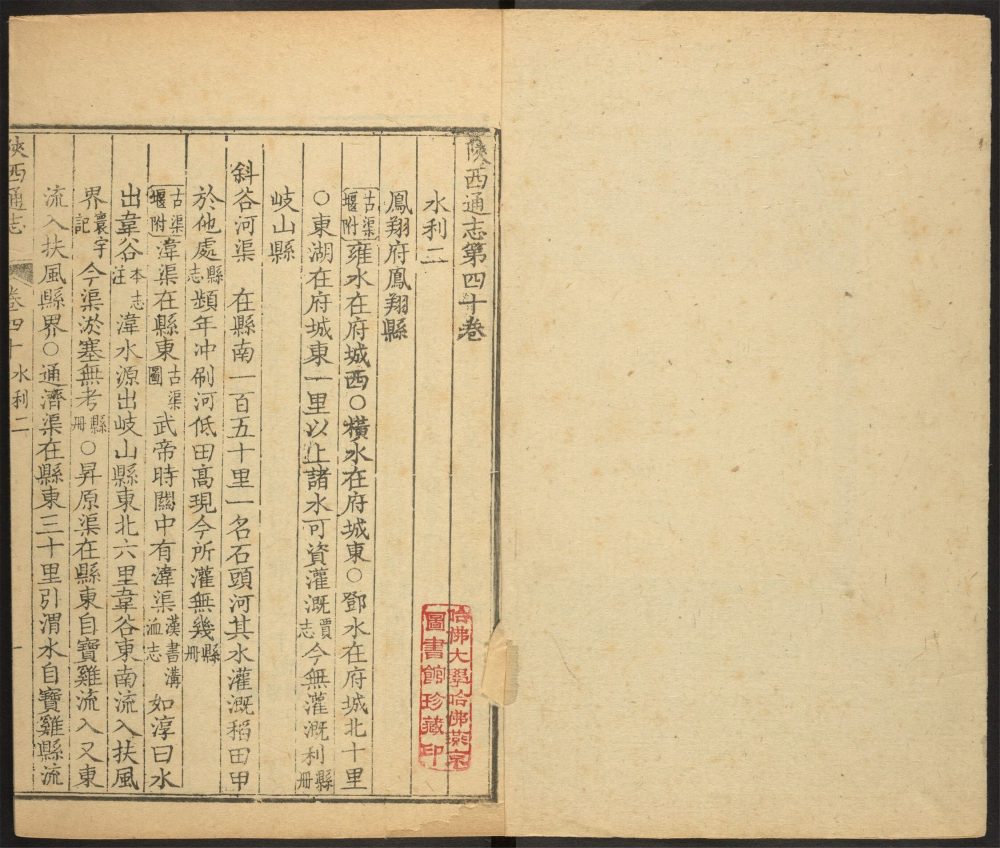 陝西通志第四十卷
水利二
鳳翔府鳳翔縣
古渠堰附雍水在府城西○橫水在府城東○鄧水在府城北十里
○東湖在府城東一里以上諸水可資灌溉賈志今無灌溉利縣冊
岐山縣
斜谷河渠　在縣南一百五十里一名石頭河其水灌溉稻田甲
於他處縣志頻年冲刷河低田高現今所灌無幾縣冊
古渠堰附湋渠在縣東古渠圖武帝時關中有湋渠漢書溝洫志　如淳曰水
出韋谷本志注湋水源出岐山縣東北六里韋谷東南流入扶風
界寰宇記今渠淤塞無考縣冊○昇原渠在縣東自寶雞流入又東
流入扶風縣界○通濟渠在縣東三十里引渭水自寶雞縣流
陝西通志　卷四十　水利二　一
哈佛大學哈佛燕京
圖書館珍藏印